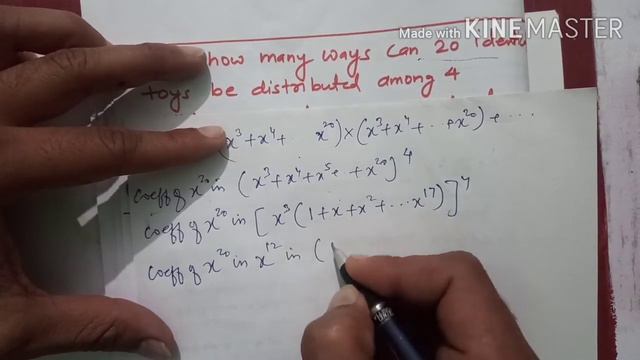 Made with KINEMASTER
how many ways can 20 iden
toys be distributed among 4
(x³+x⁴+ x²⁰)×(x³+x⁴+..+x²⁰)+...
coeff of x²⁰ in (x³+x⁴+x⁵+ +x²⁰)⁴
coeff of x²⁰ in [x³(1+x+x²+...x¹⁷)]⁴
coeff of x²⁰ in x¹² in (